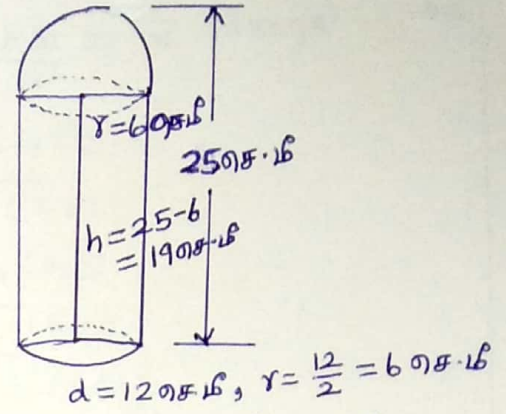 r=6செ.மீ
25செ.மீ
h=25-6
=19செ.மீ
d=12செ.மீ, r=12/2=6 செ.மீ